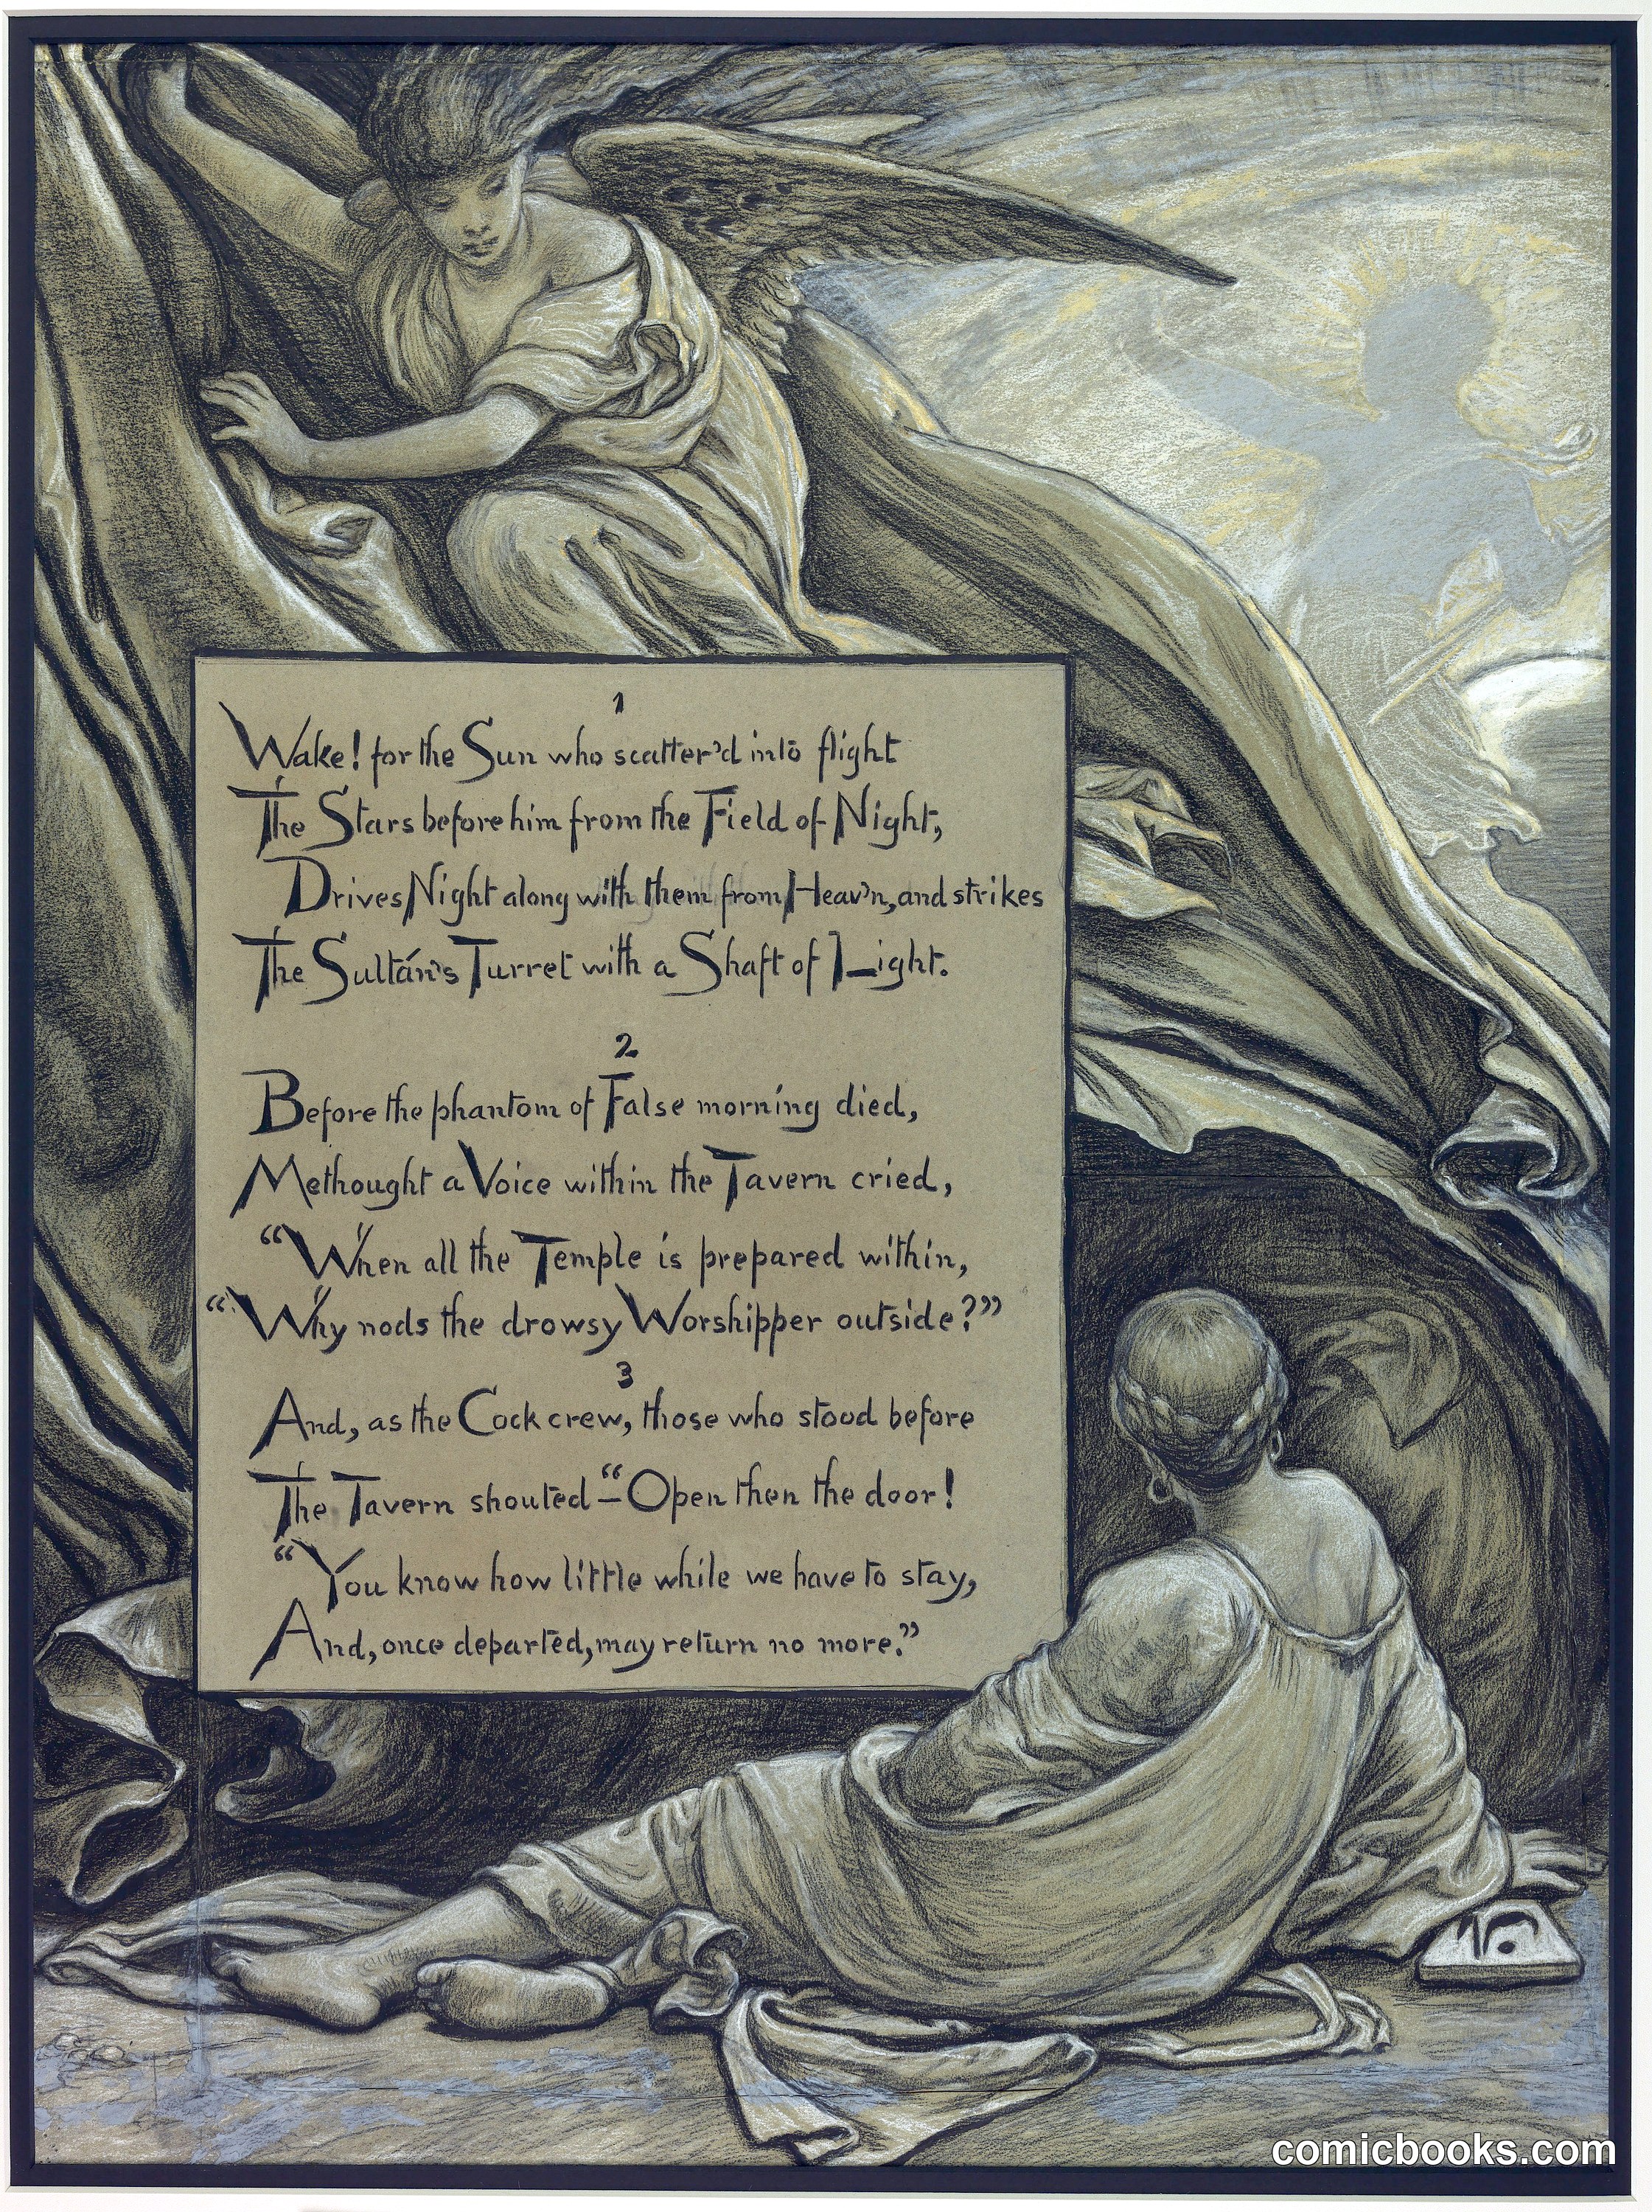 1
Wake! for the Sun who scatter'd into flight
The Stars before him from the Field of Night,
Drives Night along with them from Heav'n, and strikes
The Sultán's Turret with a Shaft of Light.
2
Before the phantom of False morning died,
Methought a Voice within the Tavern cried,
“When all the Temple is prepared within,
“Why nods the drowsy Worshipper outside?”
3
And, as the Cock crew, those who stood before
The Tavern shouted – “Open then the door!
“You know how little while we have to stay,
And, once departed, may return no more.”
comicbooks.com